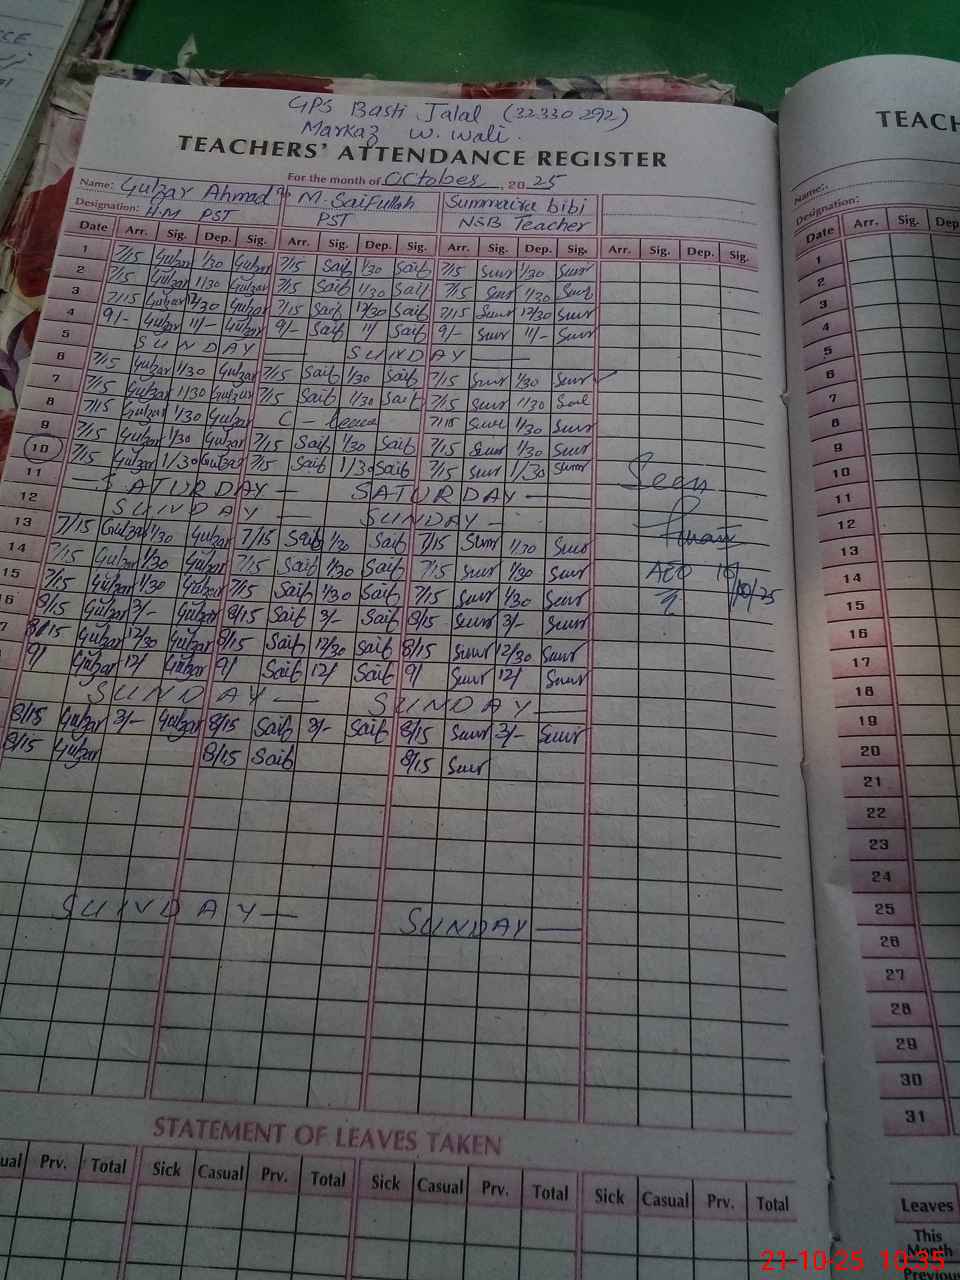 GPS Basti Jalal (32330292)
Markaz W. Wali.
TEACHERS' ATTENDANCE REGISTER
For the month of October, 2025
Name: Gulzar Ahmad M. Saifullah Summaira bibi
Designation: H.M PST PST NSB Teacher
Date Arr. Sig. Dep. Sig. Arr. Sig. Dep. Sig. Arr. Sig. Dep. Sig. Arr. Sig. Dep. Sig.
1 7/15 Gulzar 1/30 Gulzar 7/15 Saif 1/30 Saif 7/15 Sumr 1/30 Sumr
2 7/15 Gulzar 1/30 Gulzar 7/15 Saif 1/30 Saif 7/15 Sumr 1/30 Sumr
3 7/15 Gulzar 12/30 Gulzar 7/15 Saif 12/30 Saif 7/15 Sumr 12/30 Sumr
4 9/- Gulzar 11/- Gulzar 9/- Saif 11/ Saif 9/- Sumr 11/- Sumr
5 SUNDAY — SUNDAY —
6 7/15 Gulzar 1/30 Gulzar 7/15 Saif 1/30 Saif 7/15 Sumr 1/30 Sumr
7 7/15 Gulzar 1/30 Gulzar 7/15 Saif 1/30 Saif 7/15 Sumr 1/30 Sumr
8 7/15 Gulzar 1/30 Gulzar C - leave 7/15 Sumr 1/30 Sumr
9 7/15 Gulzar 1/30 Gulzar 7/15 Saif 1/30 Saif 7/15 Sumr 1/30 Sumr
10 7/15 Gulzar 1/30 Gulzar 7/15 Saif 1/30 Saif 7/15 Sumr 1/30 Sumr
11 — SATURDAY — SATURDAY —
12 SUNDAY — SUNDAY —
13 7/15 Gulzar 1/30 Gulzar 7/15 Saif 1/30 Saif 7/15 Sumr 1/30 Sumr
14 7/15 Gulzar 1/30 Gulzar 7/15 Saif 1/30 Saif 7/15 Sumr 1/30 Sumr
15 7/15 Gulzar 1/30 Gulzar 7/15 Saif 1/30 Saif 7/15 Sumr 1/30 Sumr
16 8/15 Gulzar 3/- Gulzar 8/15 Saif 3/- Saif 8/15 Sumr 3/- Sumr
7 8/15 Gulzar 12/30 Gulzar 8/15 Saif 12/30 Saif 8/15 Sumr 12/30 Sumr
9/ Gulzar 12/ Gulzar 9/ Saif 12/ Saif 9/ Sumr 12/ Sumr
SUNDAY — SUNDAY —
8/15 Gulzar 3/- Gulzar 8/15 Saif 3/- Saif 8/15 Sumr 3/- Sumr
8/15 Gulzar 8/15 Saif 8/15 Sumr
SUNDAY — SUNDAY —
Seen
AEO
10/25
STATEMENT OF LEAVES TAKEN
ual Prv. Total Sick Casual Prv. Total Sick Casual Prv. Total Sick Casual Prv. Total
TEACH
Name:
Designation:
Date Arr. Sig. Dep
1
2
3
4
5
6
7
8
9
10
11
12
13
14
15
16
17
18
19
20
21
22
23
24
25
26
27
28
29
30
31
Leaves
This
Month
Previous
21-10-25 10:35